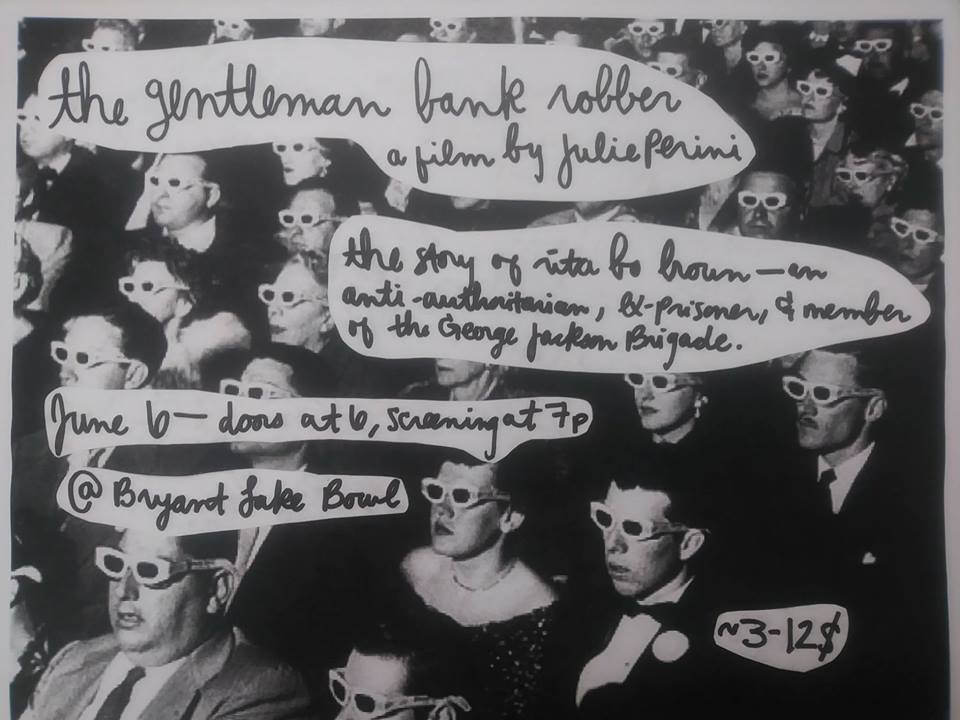 the gentleman bank robber
a film by Julie Perini
the story of rita bo brown — an
anti-authoritarian, ex-prisoner, & member
of the George Jackson Brigade.
June 6 — doors at 6, screening at 7p
@ Bryant Lake Bowl
~3-12$